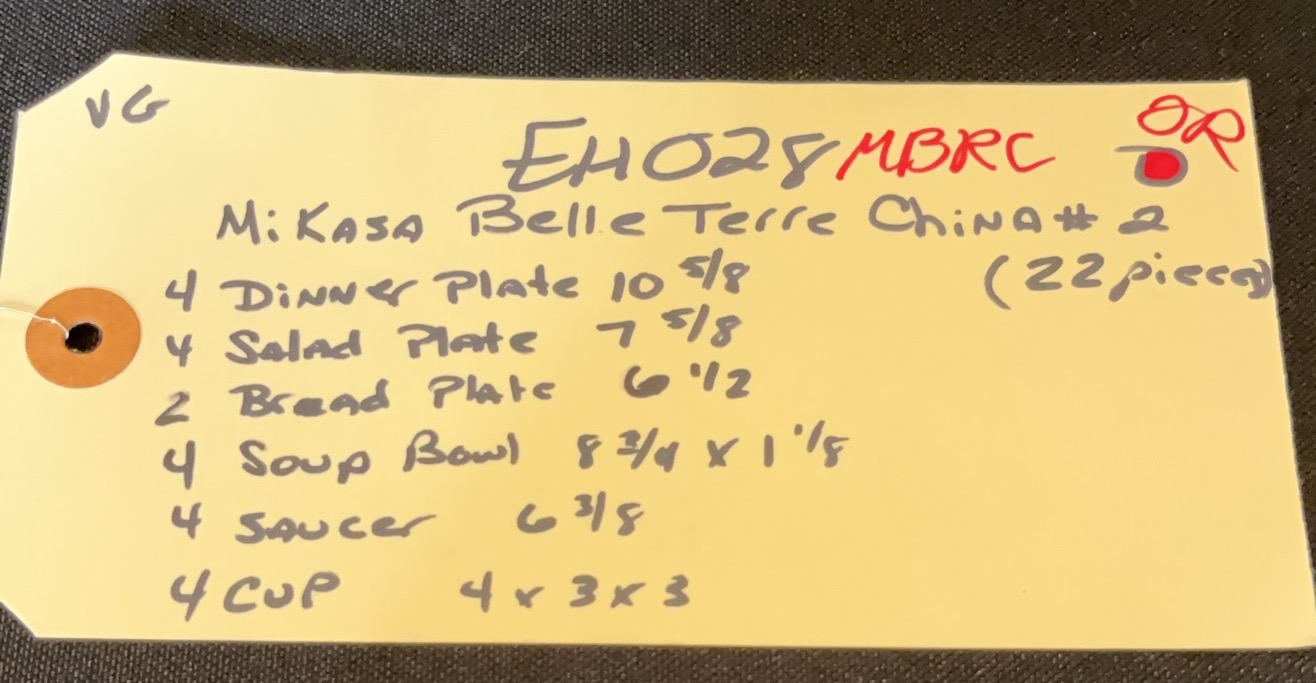 VG
OR
EH028 MBRC
MiKASA Belle Terre ChiNA # 2
(22 pieces)
4 DiNNer Plate 10 5/8
4 Salad Plate 7 5/8
2 Bread Plate 6 1/2
4 Soup Bowl 8 3/4 x 1 1/8
4 SAUCer 6 3/8
4 CUP 4 x 3 x 3